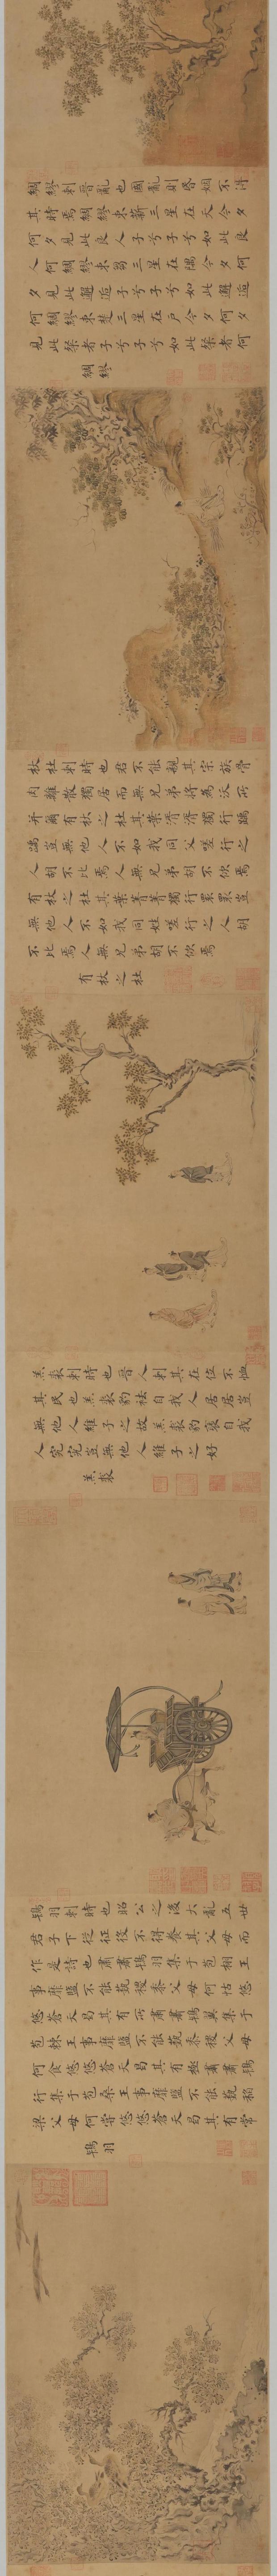 綢繆刺晉亂也國亂則昏姻不得
其時焉綢繆束薪三星在天今夕
何夕見此良人子兮子兮如此良
人何綢繆束芻三星在隅今夕何
夕見此邂逅子兮子兮如此邂逅
何綢繆束楚三星在戶今夕何夕
見此粲者子兮子兮如此粲者何
綢繆
杕杜刺時也君不能親其宗族骨
肉離散獨居而無兄弟將為沃所
并爾有杕之杜其葉湑湑獨行踽
踽豈無他人不如我同父嗟行之
人胡不比焉人無兄弟胡不佽焉
有杕之杜其葉菁菁獨行睘睘豈
無他人不如我同姓嗟行之人胡
不比焉人無兄弟胡不佽焉
有杕之杜
羔裘刺時也晉人刺其在位不恤
其民也羔裘豹袪自我人居居豈
無他人維子之故羔裘豹褎自我
人究究豈無他人維子之好
羔裘
鴇羽刺時也昭公之後大亂五世
君子下從征役不得養其父母而
作是詩也肅肅鴇羽集于苞栩王
事靡盬不能蓺稷黍父母何怙悠
悠蒼天曷其有所肅肅鴇翼集于
苞棘王事靡盬不能蓺黍稷父母
何食悠悠蒼天曷其有極肅肅鴇
行集于苞桑王事靡盬不能蓺稻
粱父母何嘗悠悠蒼天曷其有常
鴇羽